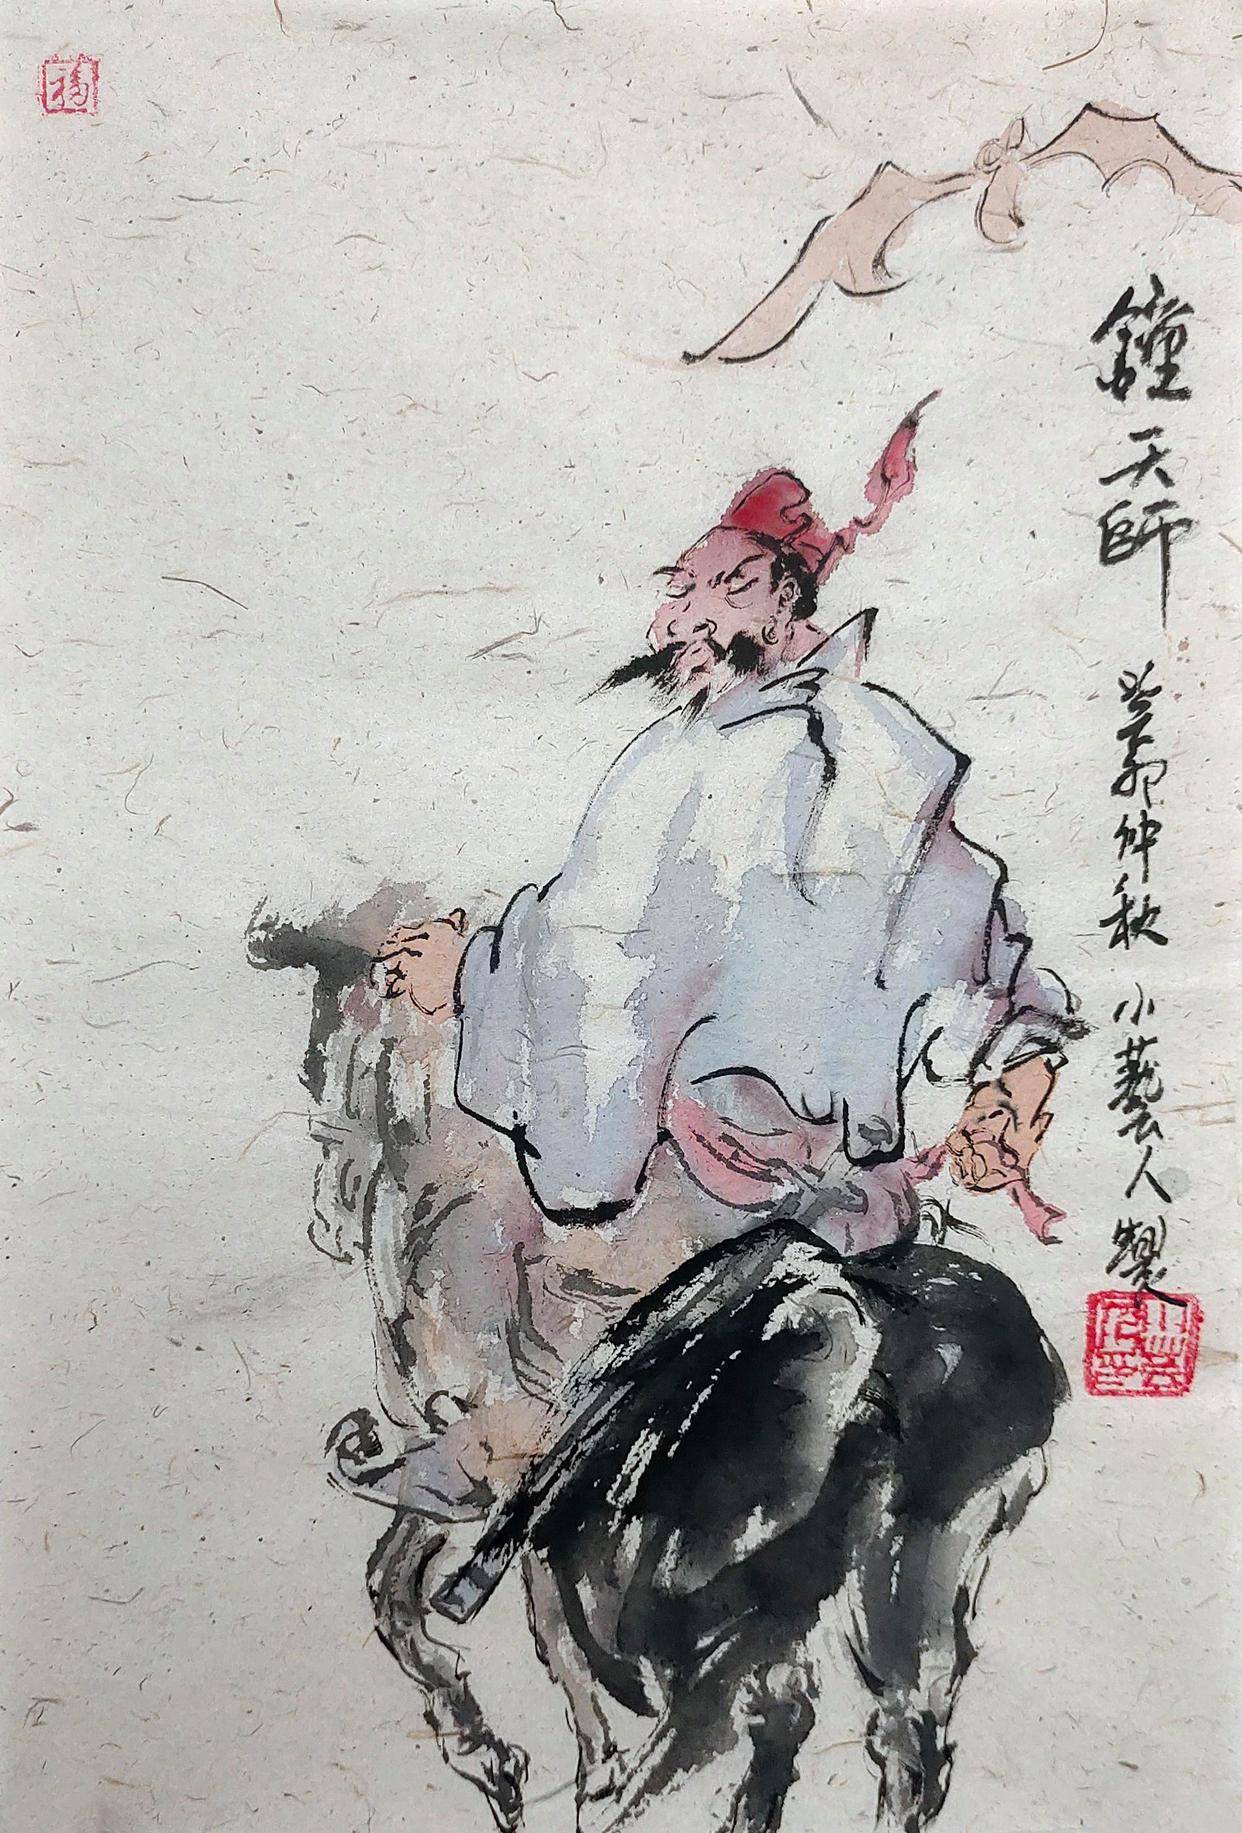 鐘天師 癸卯仲秋 小藝人製
福